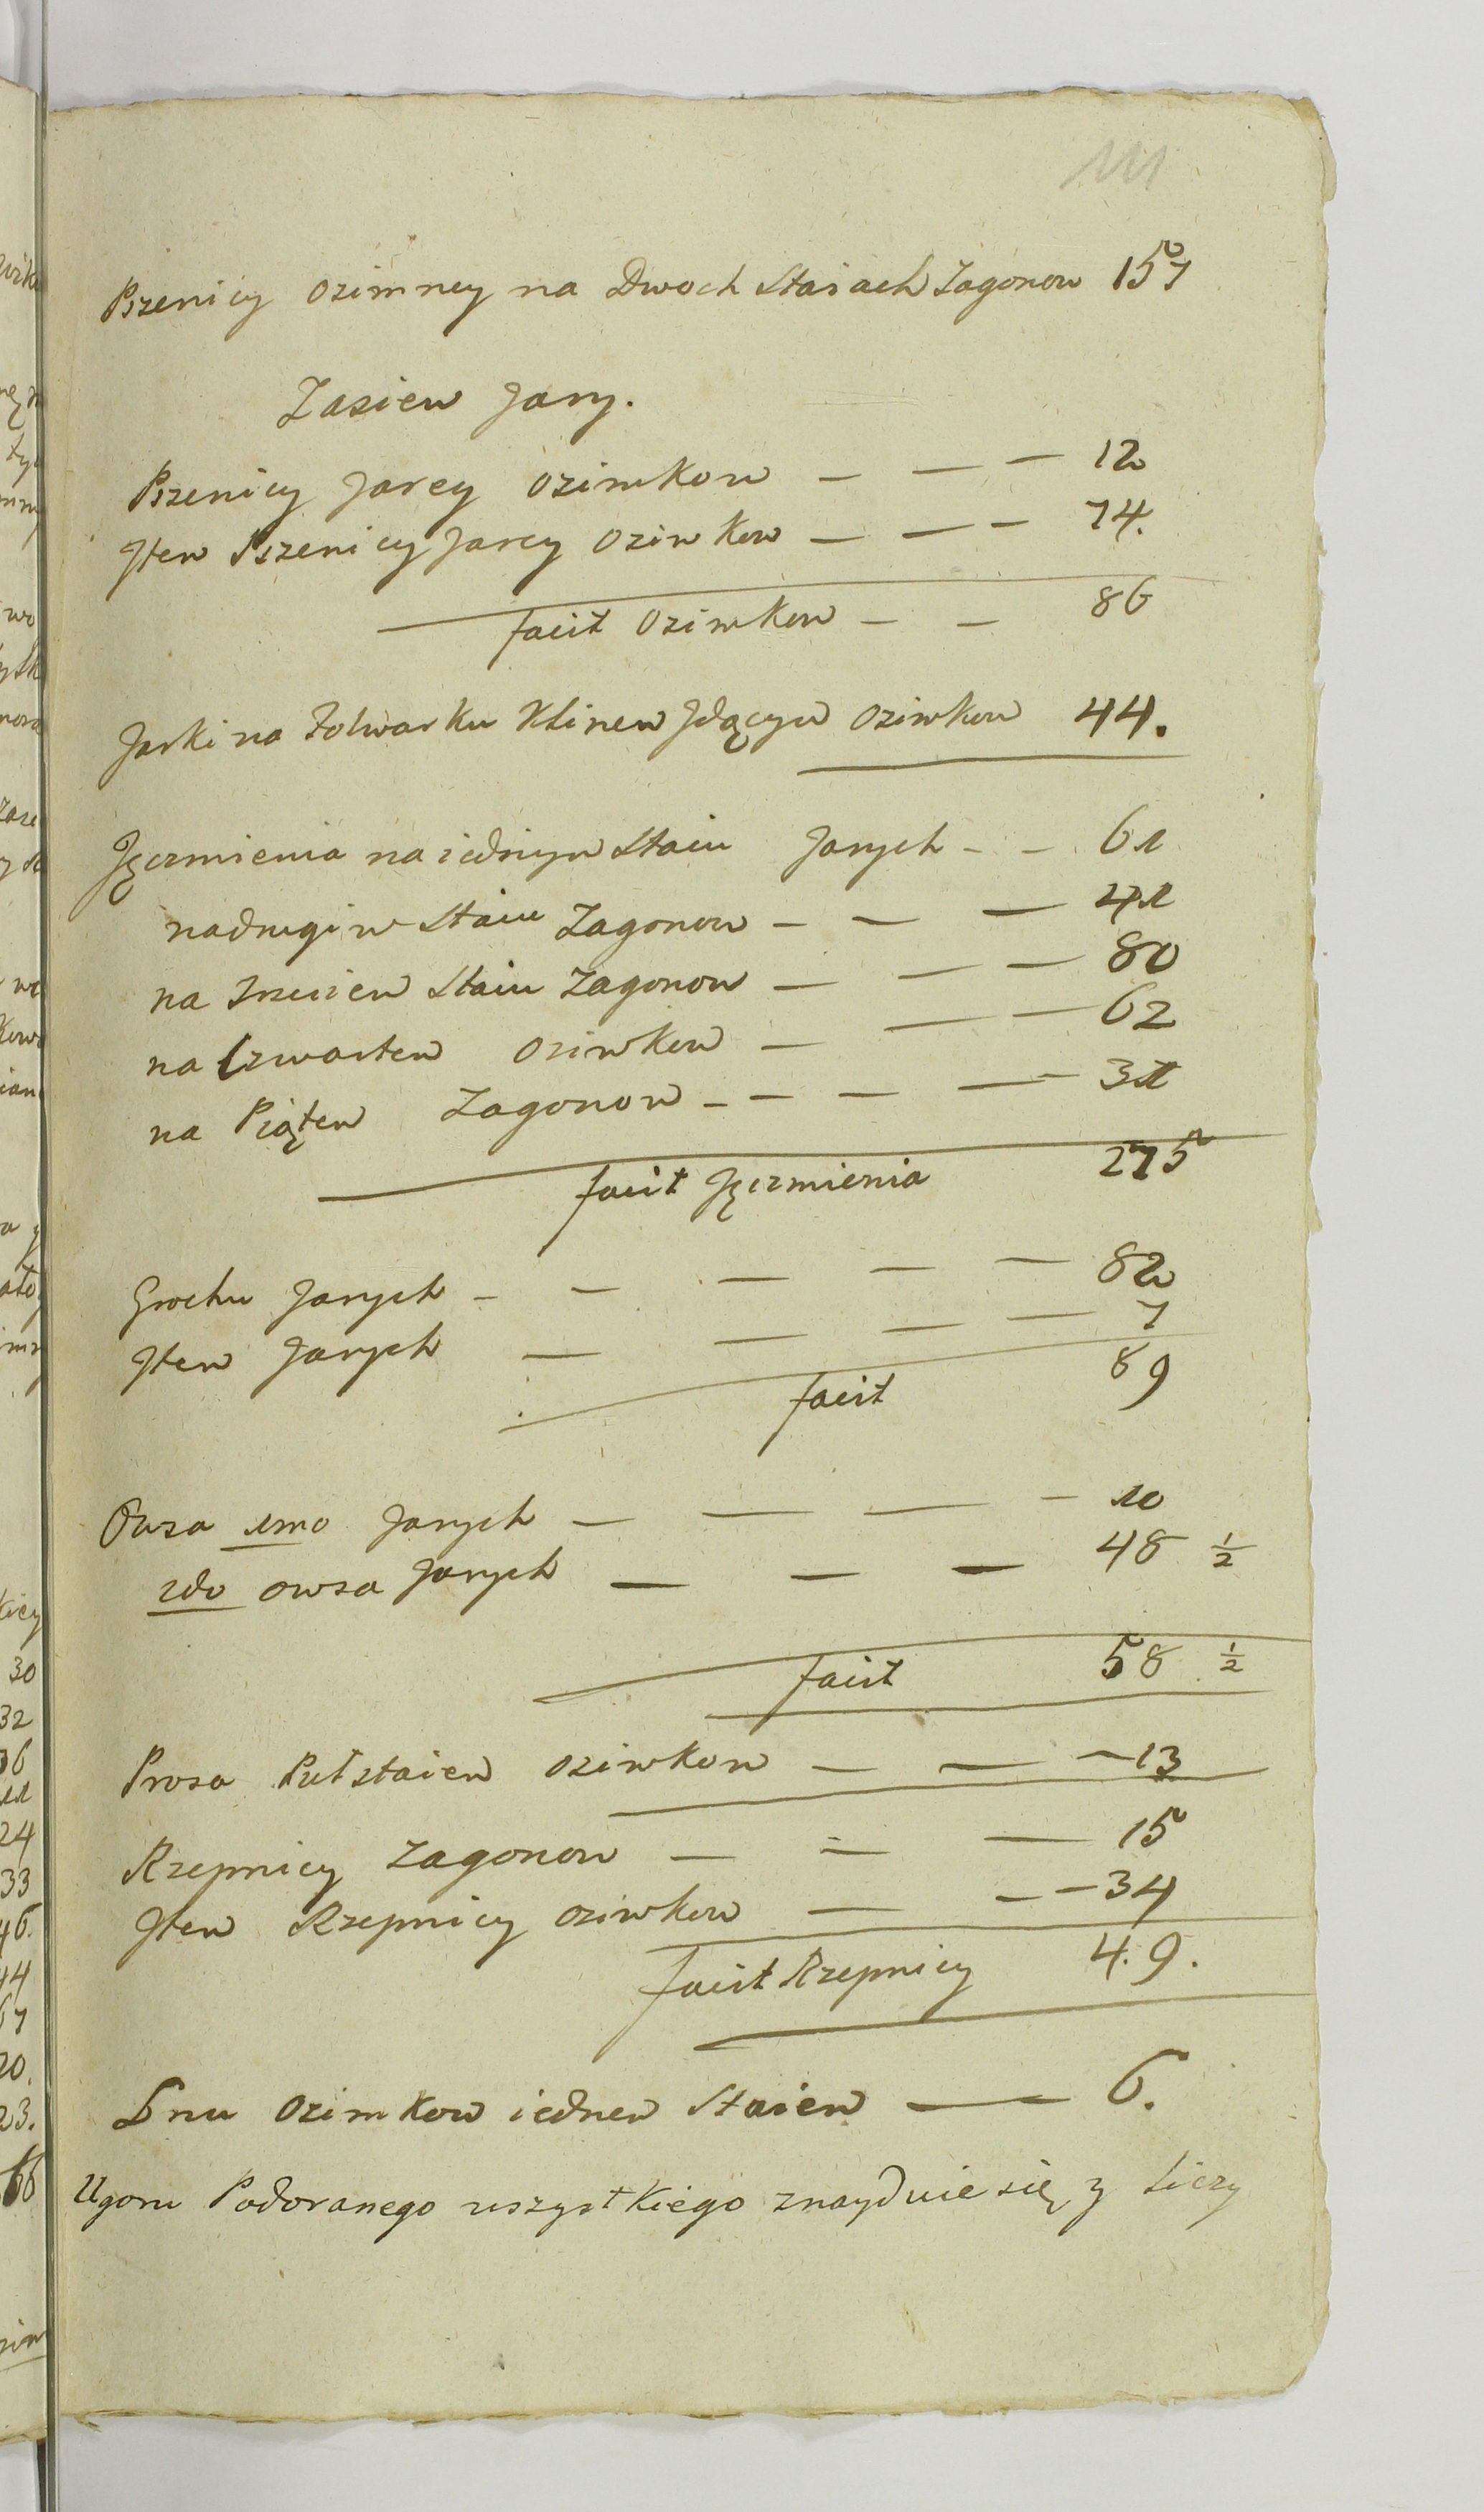 111
Pszenicy ozimney na Dwoch Staiach Zagonow 157
Zasiew Jary.
Pszenicy Jarey ozimkow — — — 12
Jtem Pszenicy Jarey ozimkow — — — 74.
facit ozimkow — — 86
Jarki na Folwarku Klinem Jdącym ozimkow 44.
Jęczmienia na iednym Staiu Jarych — — 61
na drugim Staiu Zagonow — — — 41
na Trzecim Staiu Zagonow — — — 80
na Czwartem ozimkow — — — 62
na Piątem Zagonow — — — — 31
facit Jęczmienia 275
Grochu Jarych — — — — — 82
Jtem Jarych — — — — 7
facit 89
Owsa 1mo Jarych — — — — 10
2do owsa Jarych — — — 48 1/2
facit 58 1/2
Prosa Puł staiem ozimkow — — — 13
Rzepnicy Zagonow — — — 15
Jtem Rzepnicy ozimkow — — — 34
facit Rzepnicy 4.9.
Lnu ozimkow iednem Staiem — 6.
Ugoru Podoranego wszystkiego znayduie się z Liczy